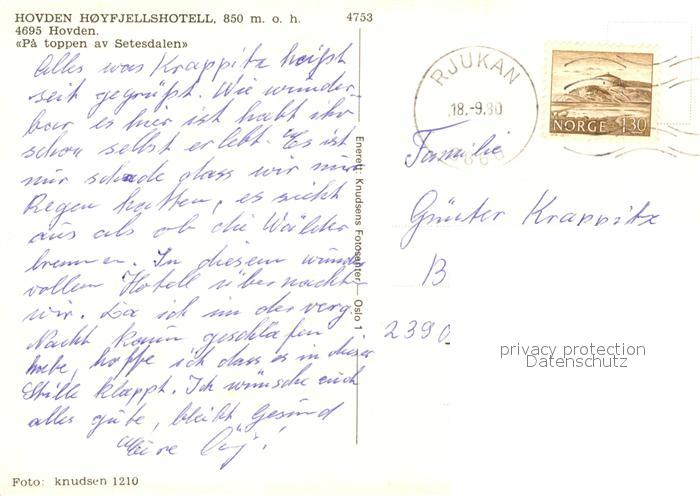 HOVDEN HØYFJELLSHOTELL, 850 m. o. h.
4695 Hovden.
«På toppen av Setesdalen»
4753
Alles was Krappitz heißt
seit gegrüßt. Wie wunder-
bar es hier ist habt ihr
schon selbst erlebt. Es ist
nur schade dass wir nur
Regen hatten, es sieht
aus als ob die Wälder
brennen. In diesem wunder
vollen Hotell übernachten
wir. Da ich in der verg.
Nacht kaum geschlafen
habe, hoffe ich dass es in dieser
Stille klappt. Ich wünsche euch
alles gute, bleibt Gesund
Eure
Foto: knudsen 1210
Enerett: Knudsens Fotosenter — Oslo 1
RJUKAN
18.-9.80
NORGE 130
Familie
Günter Krappitz
B
2390
privacy protection
Datenschutz